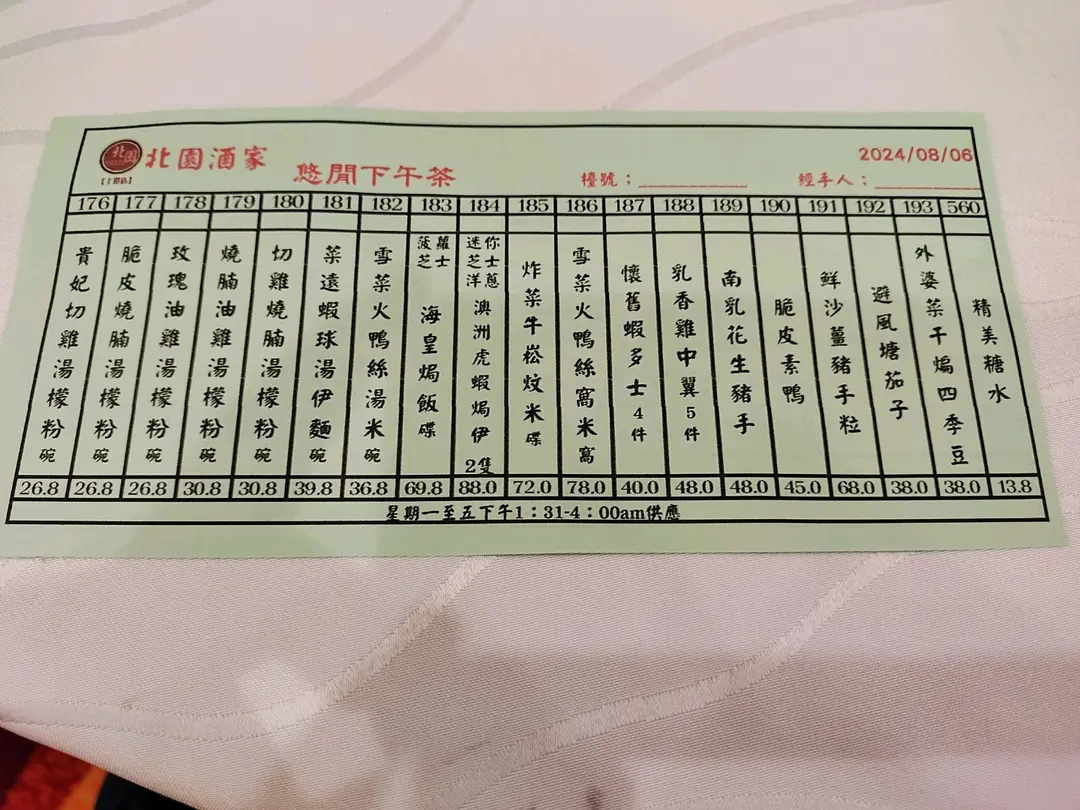 北園
北園酒家
悠閒下午茶
2024/08/06
檯號：
經手人：
176 177 178 179 180 181 182 183 184 185 186 187 188 189 190 191 192 193 560
貴妃切雞湯檬粉碗
脆皮燒腩湯檬粉碗
玫瑰油雞湯檬粉碗
燒腩油雞湯檬粉碗
切雞燒腩湯檬粉碗
菜遠蝦球湯伊麵碗
雪菜火鴨絲湯米碗
菠蘿芝士海皇焗飯碟
迷你芝士洋蔥澳洲虎蝦焗伊2隻
炸菜牛崧炆米碟
雪菜火鴨絲窩米窩
懷舊蝦多士4件
乳香雞中翼5件
南乳花生豬手
脆皮素鴨
鮮沙薑豬手粒
避風塘茄子
外婆菜干煸四季豆
精美糖水
26.8 26.8 26.8 30.8 30.8 39.8 36.8 69.8 88.0 72.0 78.0 40.0 48.0 48.0 45.0 68.0 38.0 38.0 13.8
星期一至五下午1：31-4：00am供應